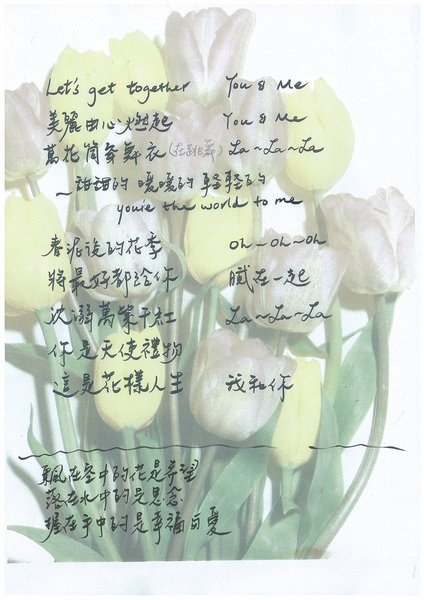 Let's get together You & Me
美麗由心燃起 You & Me
萬花筒穿舞衣 La~La~La
~甜甜的 暖暖的 輕輕的
you're the world to me
春泥後的花季 Oh~Oh~Oh
將最好都給你 膩在一起
沈溺萬紫千紅 La~La~La
你是天使禮物
這是花樣人生 我和你
飄在空中的花是希望
落在水中的是思念
握在手中的是幸福自愛